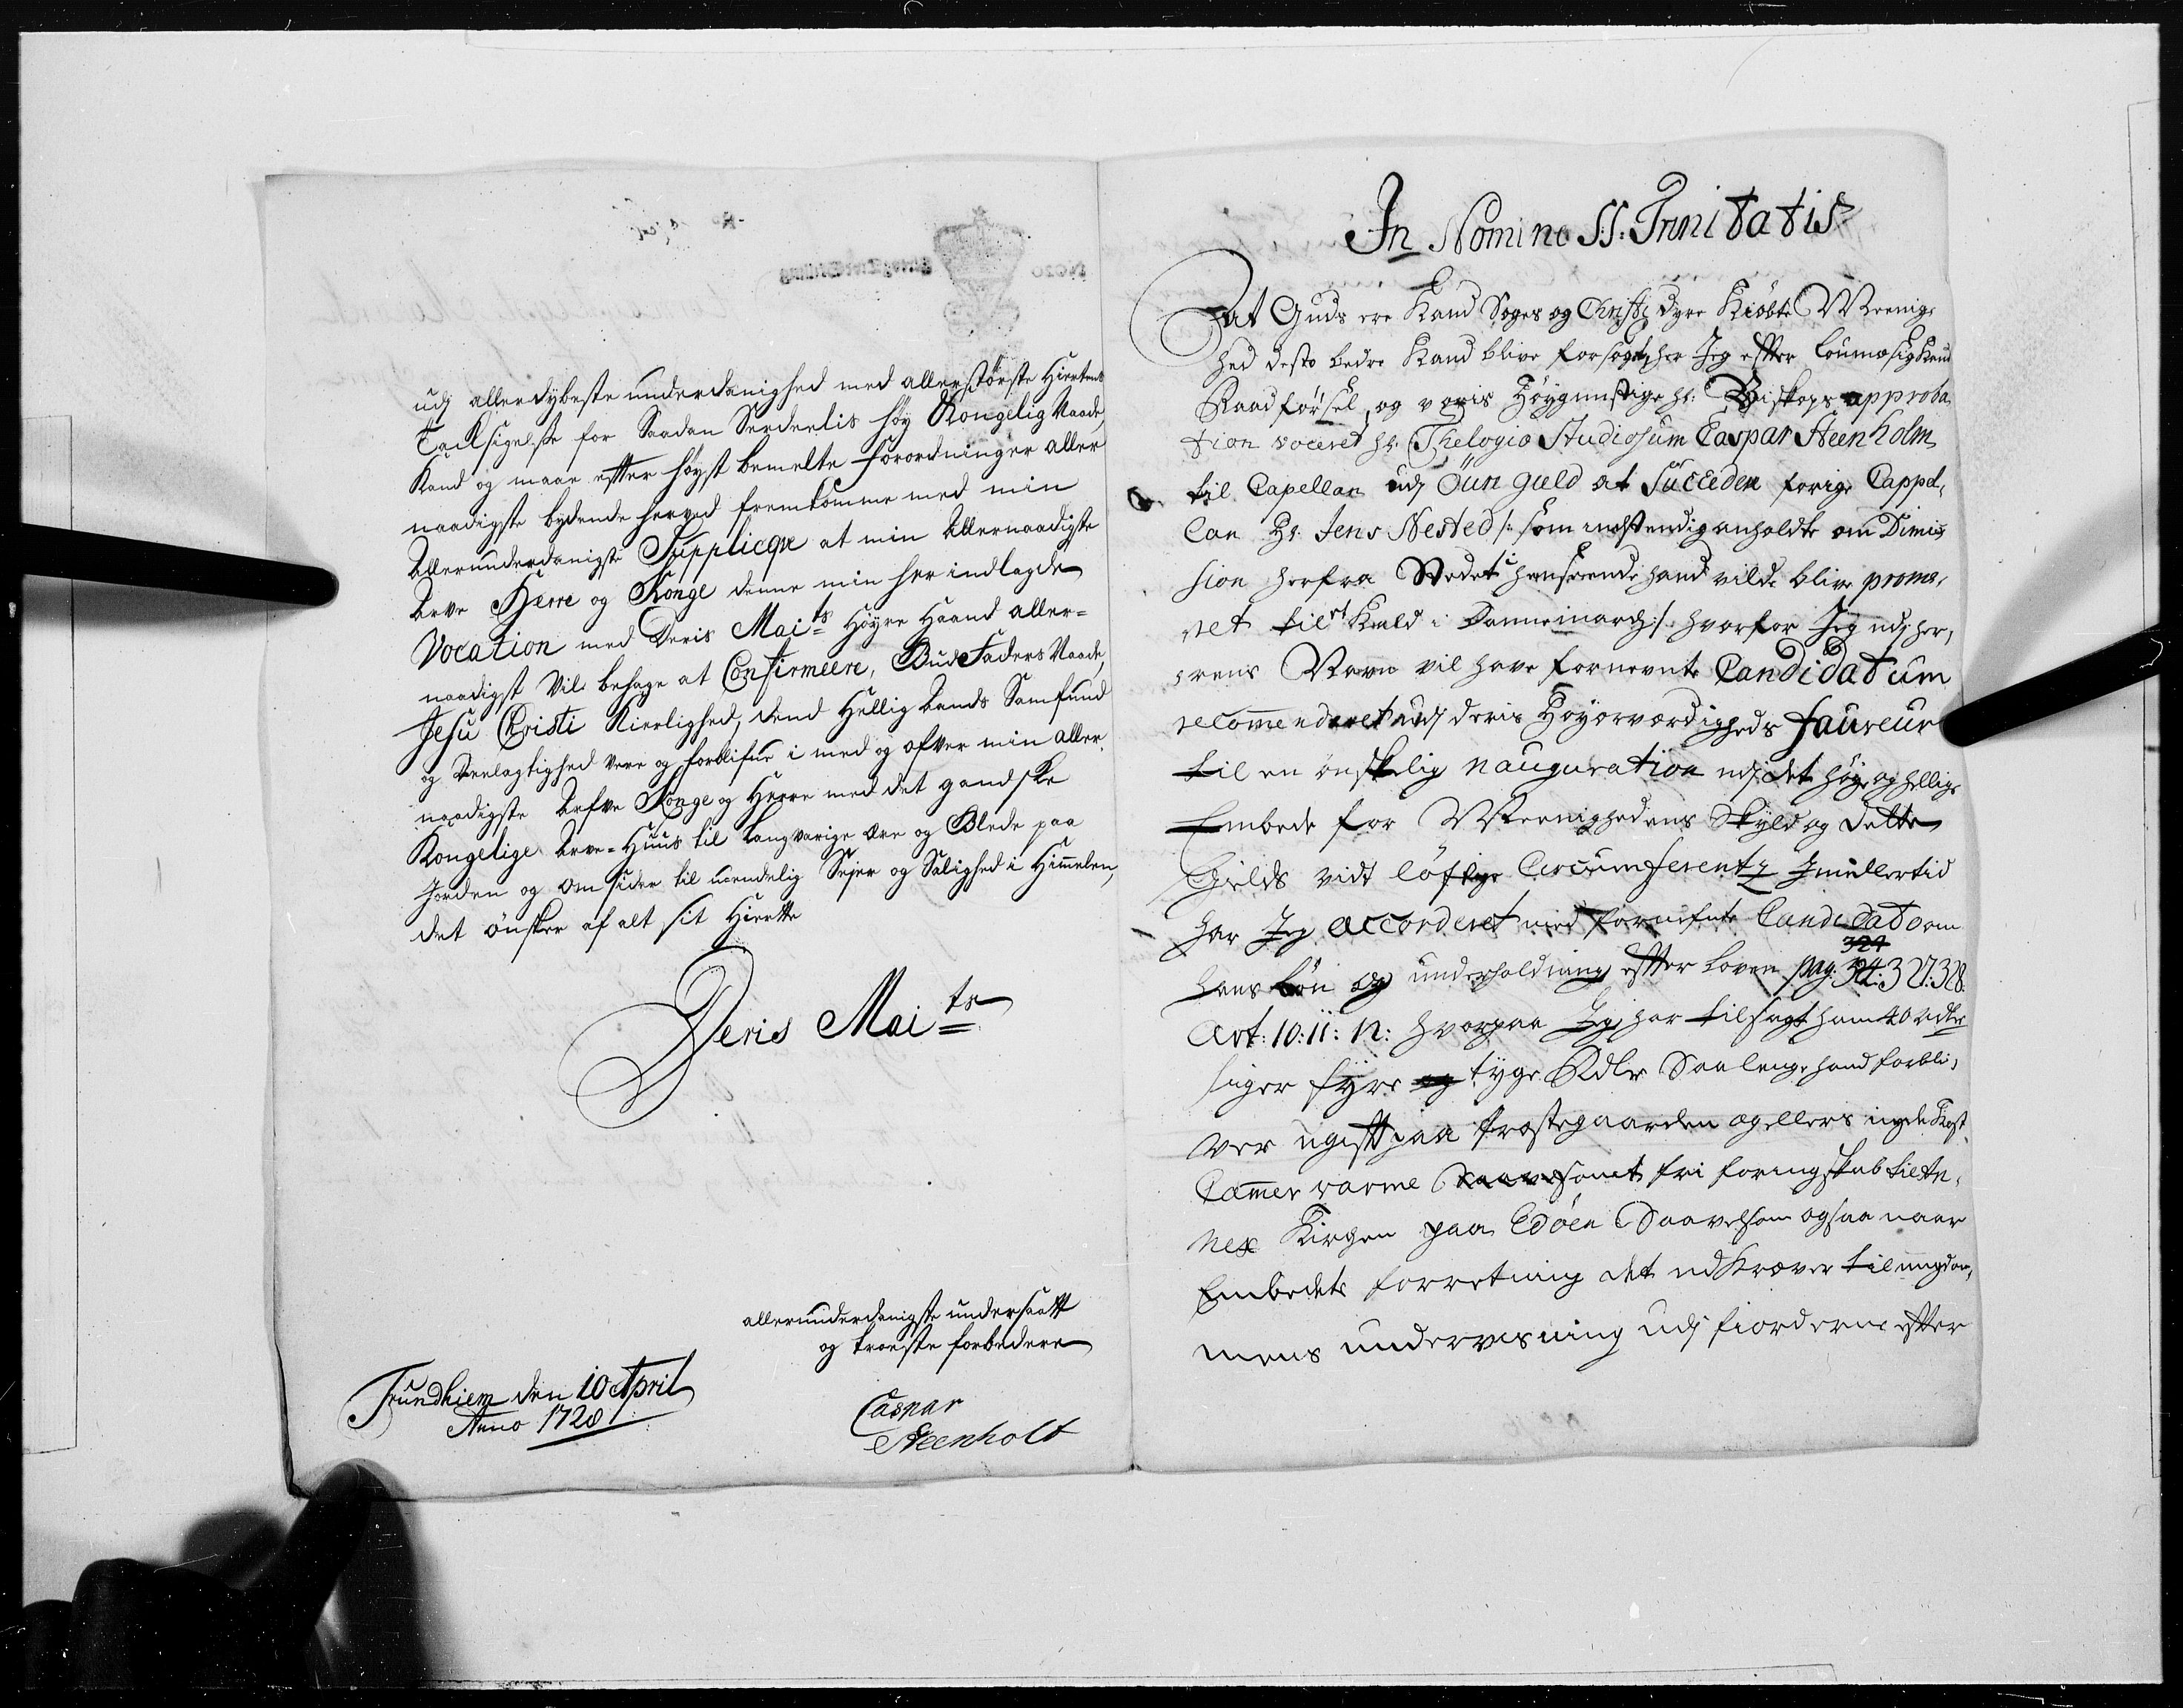 udj allerdybeste underdanighed med allerstörste Hiertens
Tacksigelse for Saadan Serdeelis höy Kongelig Naade,
Kand og maae efter höyst bemelte forordninger aller
naadigste bydende herved fremkomme med min
Allerunderdanigste Supplicqve at min Allernaadigste
Arve Herre og Konge denne min her indlagde
Vocation med Deris Maits Höyre Haand aller-
naadigst Vil behage at Confirmeere, Gud Faders Naade,
Jesu Christi Kierlighed, dend Hellig Aands Samfund
og Deelagtighed være og forblifve i med og ofver min aller
naadigste Arfve Konge og Herre med det gandske
Kongelige Arve-Huus til langvarige Ære og Glæde paa
Jorden og omsider til uendelig Sejer og Salighed i Himmelen,
det önsker af alt sit Hierte
Deris Maits
allerunderdanigste undersaatt
og troeste forbedere
Trundhiem den 10 April
Anno 1728
Caspar
Steenholt
In Nomine S.S. Trinitatis
At Guds ære Kand Söges og Christi dyre Kiöbte Meenig
hed desto bedre Kand blive forsögt, har Jeg efter loumæsig
Raadförsel, og voris Höygunstige Hr: Biskops approba
tion voceret Hr. Theologiæ Studiosum Caspar Steenholm
til Capellan udj Öun gield at Succedere forige Cappel,
lan Hr. Jens Nested /: som indstendig anholdte om Dimis
sion herfra Stedet henseende hand vilde blive promo,
veret til et Kald i Dannemarch :/ hvorfor Jeg udj her,
rens Navn vil have fornevnte Candidatum
recommenderet udj deris Höyærværdigheds faureur
til en önskelig nauguration udj det höye og hellige
Embede for Meenighedens Skyld og dette
Gields vidt löftige Circumferentz Imidlertid
har Jeg accorderet med fornefnte Candidato om
324
hans lön og underholdning efter loven pag. 324. 327. 328.
Art: 10: 11: 12: hvorpaa Jeg har tilsagt ham 40 rdlr
siger fyre og tyge Rdlr Saa lenge hand forbli,
ver ugift paa Præstegaarden og ellers Kost
Camer varme samt fri foringskab til An,
nex Kirchen paa Edöen Saavelsom ogsaa naar
Embedets forretning det udKræver til ungdom,
mens undervisning udj fiorderne efter